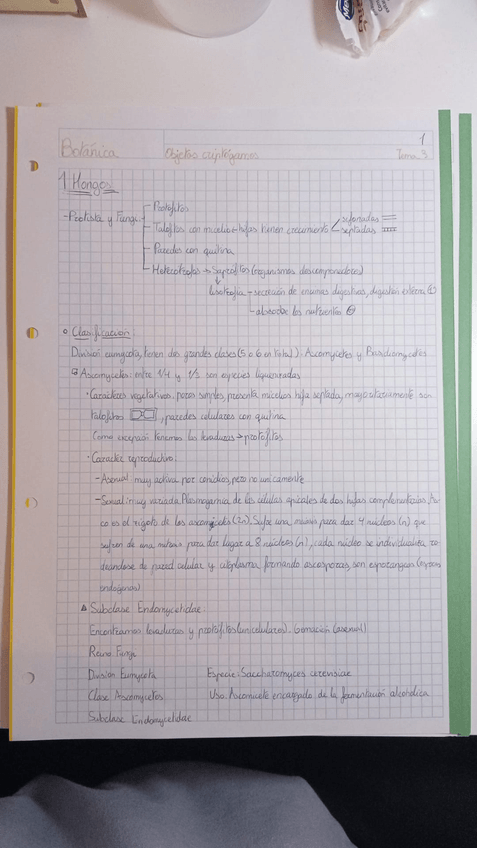 1
Botánica Objetos criptógamos Tema 3
1. Hongos
- Protista y Fungi
- Protofitos
- Talofitos con micelio → hifas tienen crecimiento sifonadas
septadas
- Paredes con quitina
- Heterótrofos → Saprófitos (organismos descomponedores)
- secreción de enzimas digestivas, digestión externa ①
- absorbe los nutrientes ②
○ Clasificación:
División eumycota, tienen dos grandes clases (5 o 6 en total). Ascomycetes y Basidiomycetes
Ascomycetes: entre 1/4 y 1/3 son especies liquenizadas
· Caracteres vegetativos: poros simples, presenta micelios hifa septada, mayoritariamente son
talofitos , paredes celulares con quitina
Como excepción tenemos las levaduras → protofitos
· Carácter reproductivo:
- Asexual: muy activa por conidios, pero no unicamente
- Sexual: muy variada. Plasmogamia de las células apicales de dos hifas complementarias. As-
co es el zigoto de los ascomycota (2n). Sufre una meiosis para dar 4 núcleos (n) que
sufren de una mitosis para dar lugar a 8 núcleos (n), cada núcleo se individualiza ro-
deándose de pared celular y citoplasma, formando ascosporas, son esporangios (esporas
endógenas)
△ Subclase Endomycetidae:
Encontramos levaduras y protofitos (unicelulares). Gemación (asexual)
Reino Fungi
División Eumycota Especie: Saccharomyces cerevisiae
Clase Ascomycetos Uso: Ascomicete encargado de la fermentación alcohólica
Subclase Endomycetidae